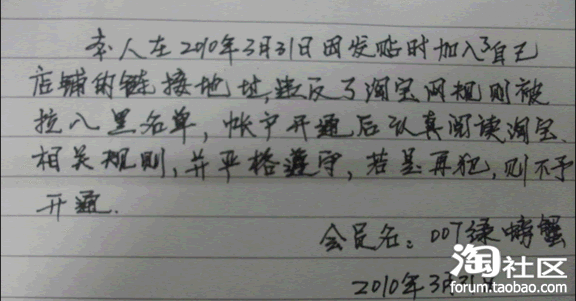 本人在2010年3月31日因发贴时加入了自己
店铺的链接地址,违反了淘宝网规则被
拉入黑名单,帐户开通后认真阅读淘宝
相关规则,并严格遵守,若是再犯,则不予
开通.
会员名:007绿螃蟹
2010年3月31日
淘社区
forum.taobao.com